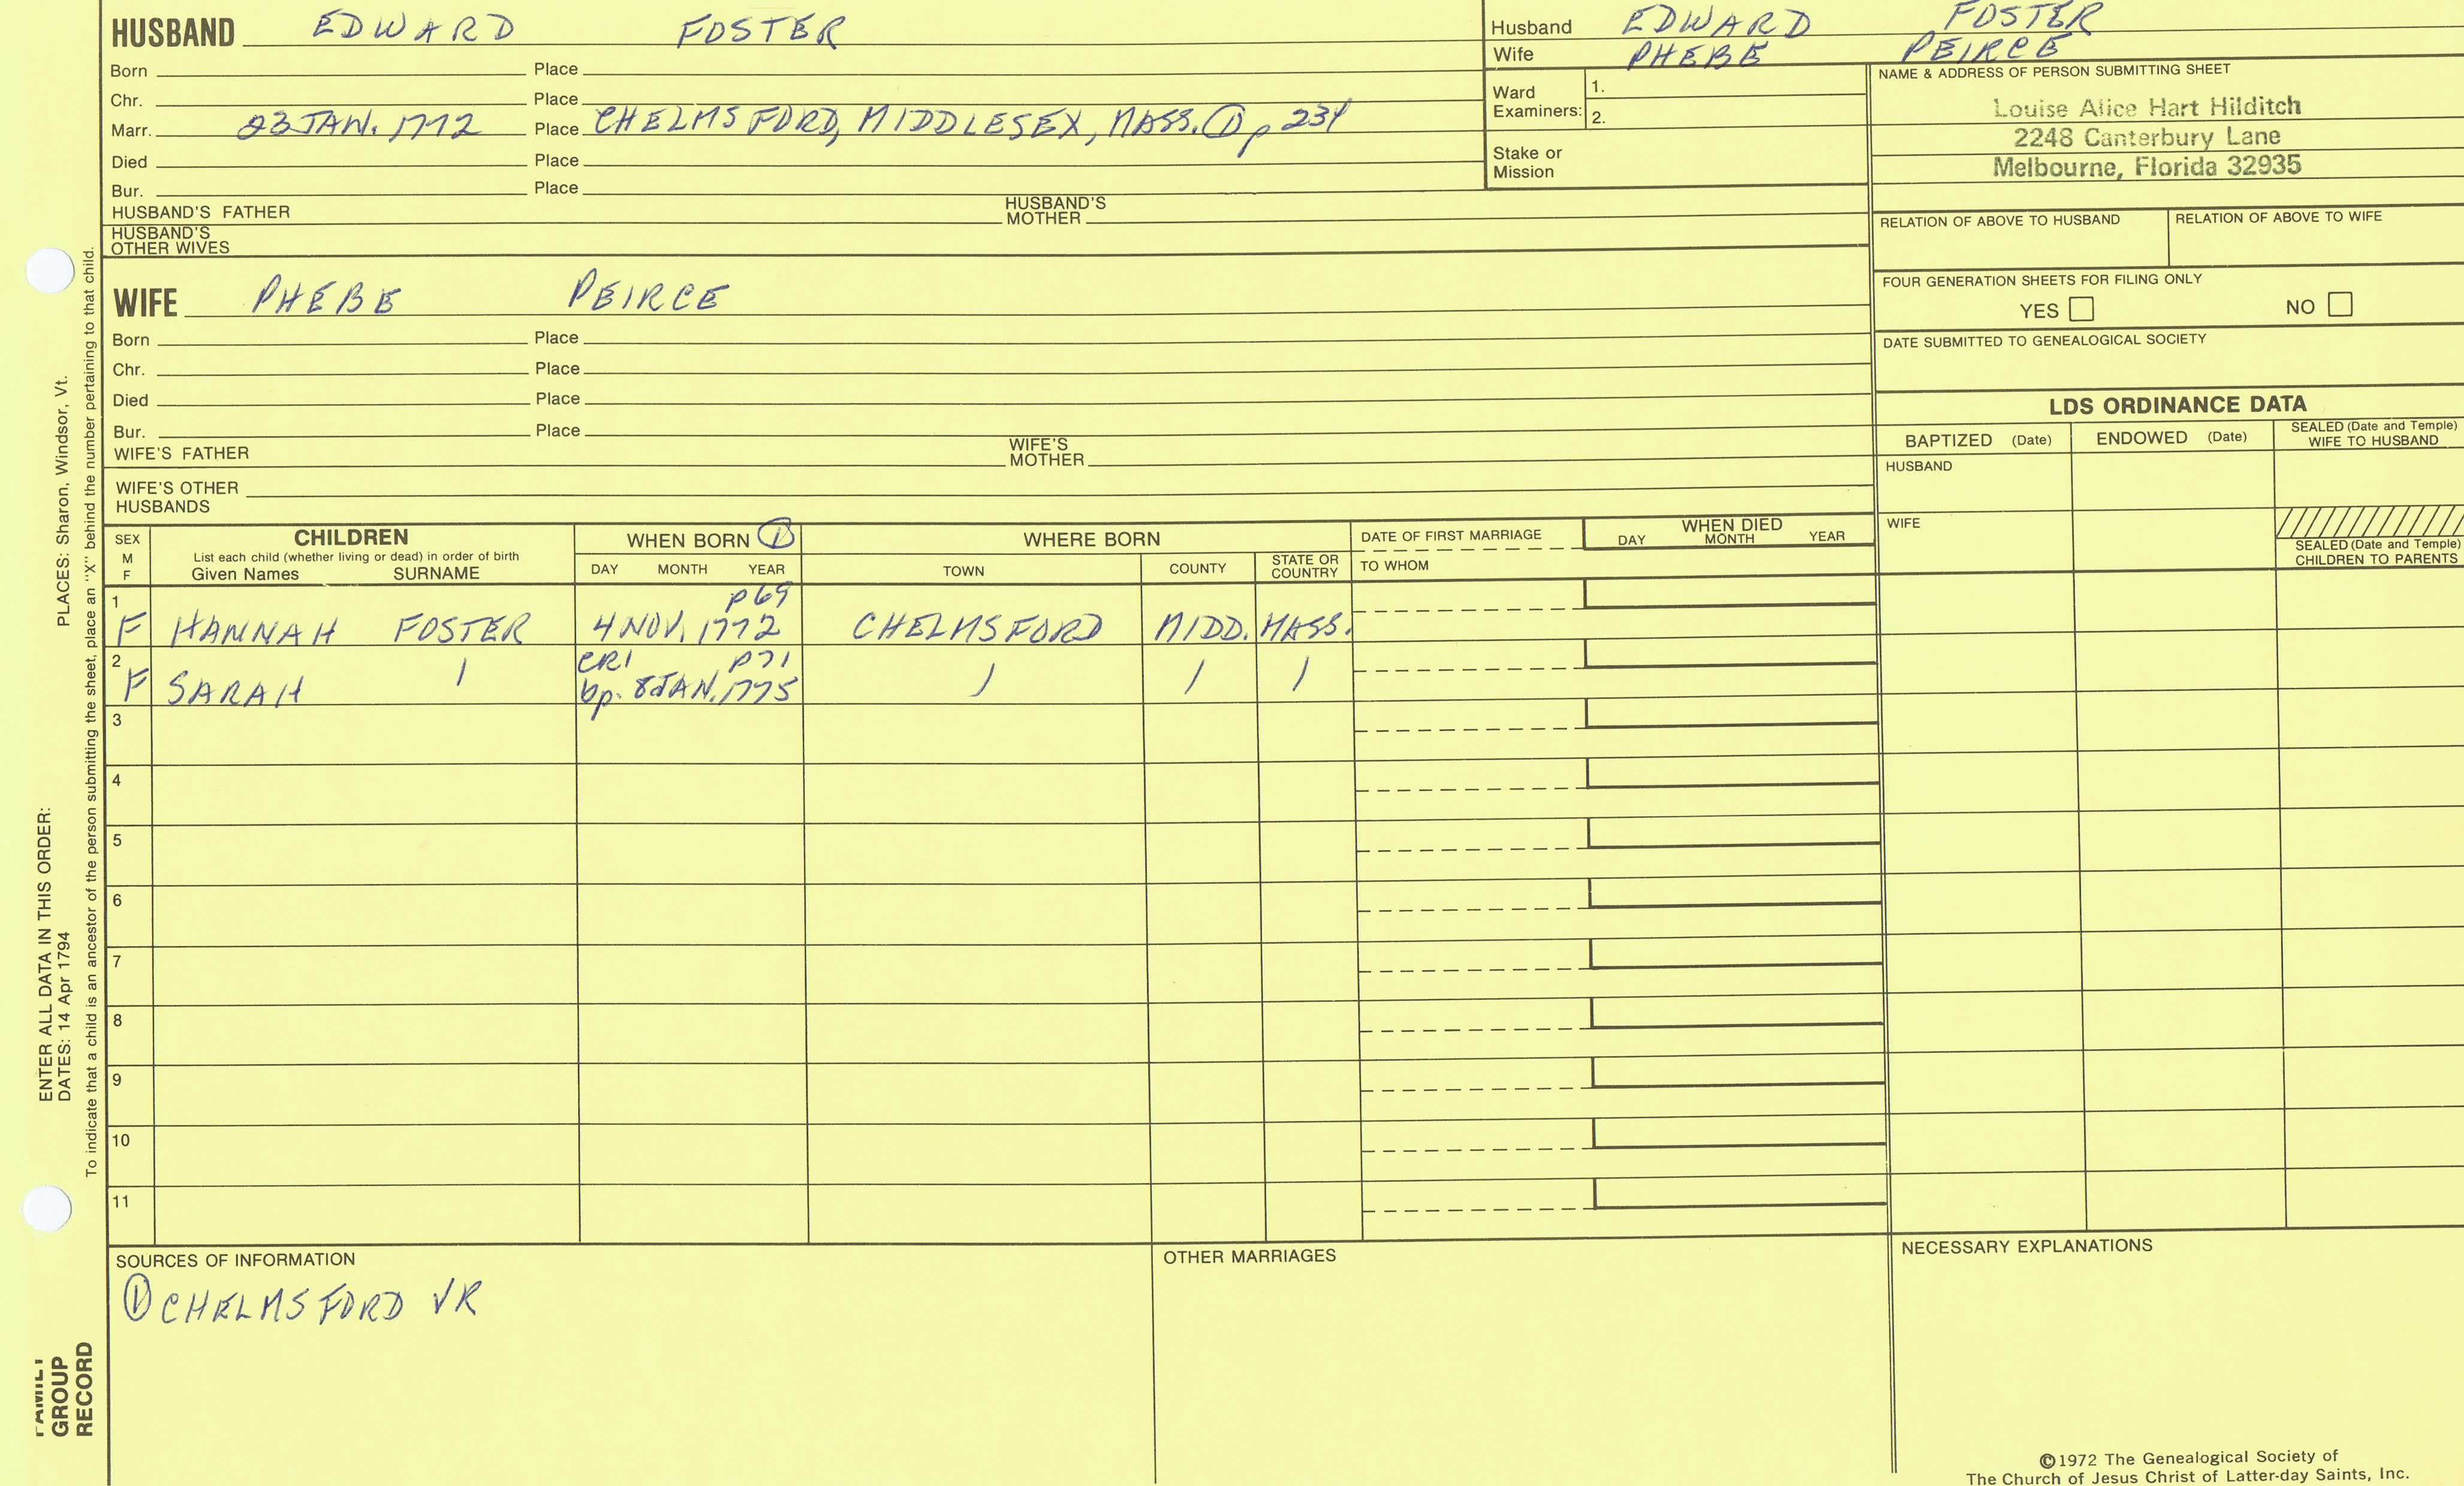 HUSBAND EDWARD FOSTER
Born Place
Chr. Place
Marr. 23 JAN. 1772 Place CHELMSFORD, MIDDLESEX, MASS. ① p 234
Died Place
Bur. Place
HUSBAND'S FATHER HUSBAND'S MOTHER
HUSBAND'S OTHER WIVES
Husband EDWARD FOSTER
Wife PHEBE PEIRCE
Ward Examiners: 1.
2.
Stake or Mission
NAME & ADDRESS OF PERSON SUBMITTING SHEET
Louise Alice Hart Hilditch
2248 Canterbury Lane
Melbourne, Florida 32935
RELATION OF ABOVE TO HUSBAND RELATION OF ABOVE TO WIFE
FOUR GENERATION SHEETS FOR FILING ONLY
YES NO
DATE SUBMITTED TO GENEALOGICAL SOCIETY
WIFE PHEBE PEIRCE
Born Place
Chr. Place
Died Place
Bur. Place
WIFE'S FATHER WIFE'S MOTHER
WIFE'S OTHER HUSBANDS
LDS ORDINANCE DATA
BAPTIZED (Date) ENDOWED (Date) SEALED (Date and Temple) WIFE TO HUSBAND
HUSBAND
WIFE
SEALED (Date and Temple) CHILDREN TO PARENTS
SEX M F
CHILDREN
List each child (whether living or dead) in order of birth
Given Names SURNAME
WHEN BORN ①
DAY MONTH YEAR
WHERE BORN
TOWN COUNTY STATE OR COUNTRY
DATE OF FIRST MARRIAGE
TO WHOM
WHEN DIED
DAY MONTH YEAR
1 p69
F HANNAH FOSTER 4 NOV. 1772 CHELMSFORD MIDD. MASS.
2 CR1 p71
F SARAH / bp. 8 JAN. 1775 / / /
3
4
5
6
7
8
9
10
11
SOURCES OF INFORMATION
① CHELMSFORD VR
OTHER MARRIAGES
NECESSARY EXPLANATIONS
©1972 The Genealogical Society of
The Church of Jesus Christ of Latter-day Saints, Inc.
ENTER ALL DATA IN THIS ORDER:
DATES: 14 Apr 1794 PLACES: Sharon, Windsor, Vt.
To indicate that a child is an ancestor of the person submitting the sheet, place an "X" behind the number pertaining to that child.
FAMILY
GROUP
RECORD